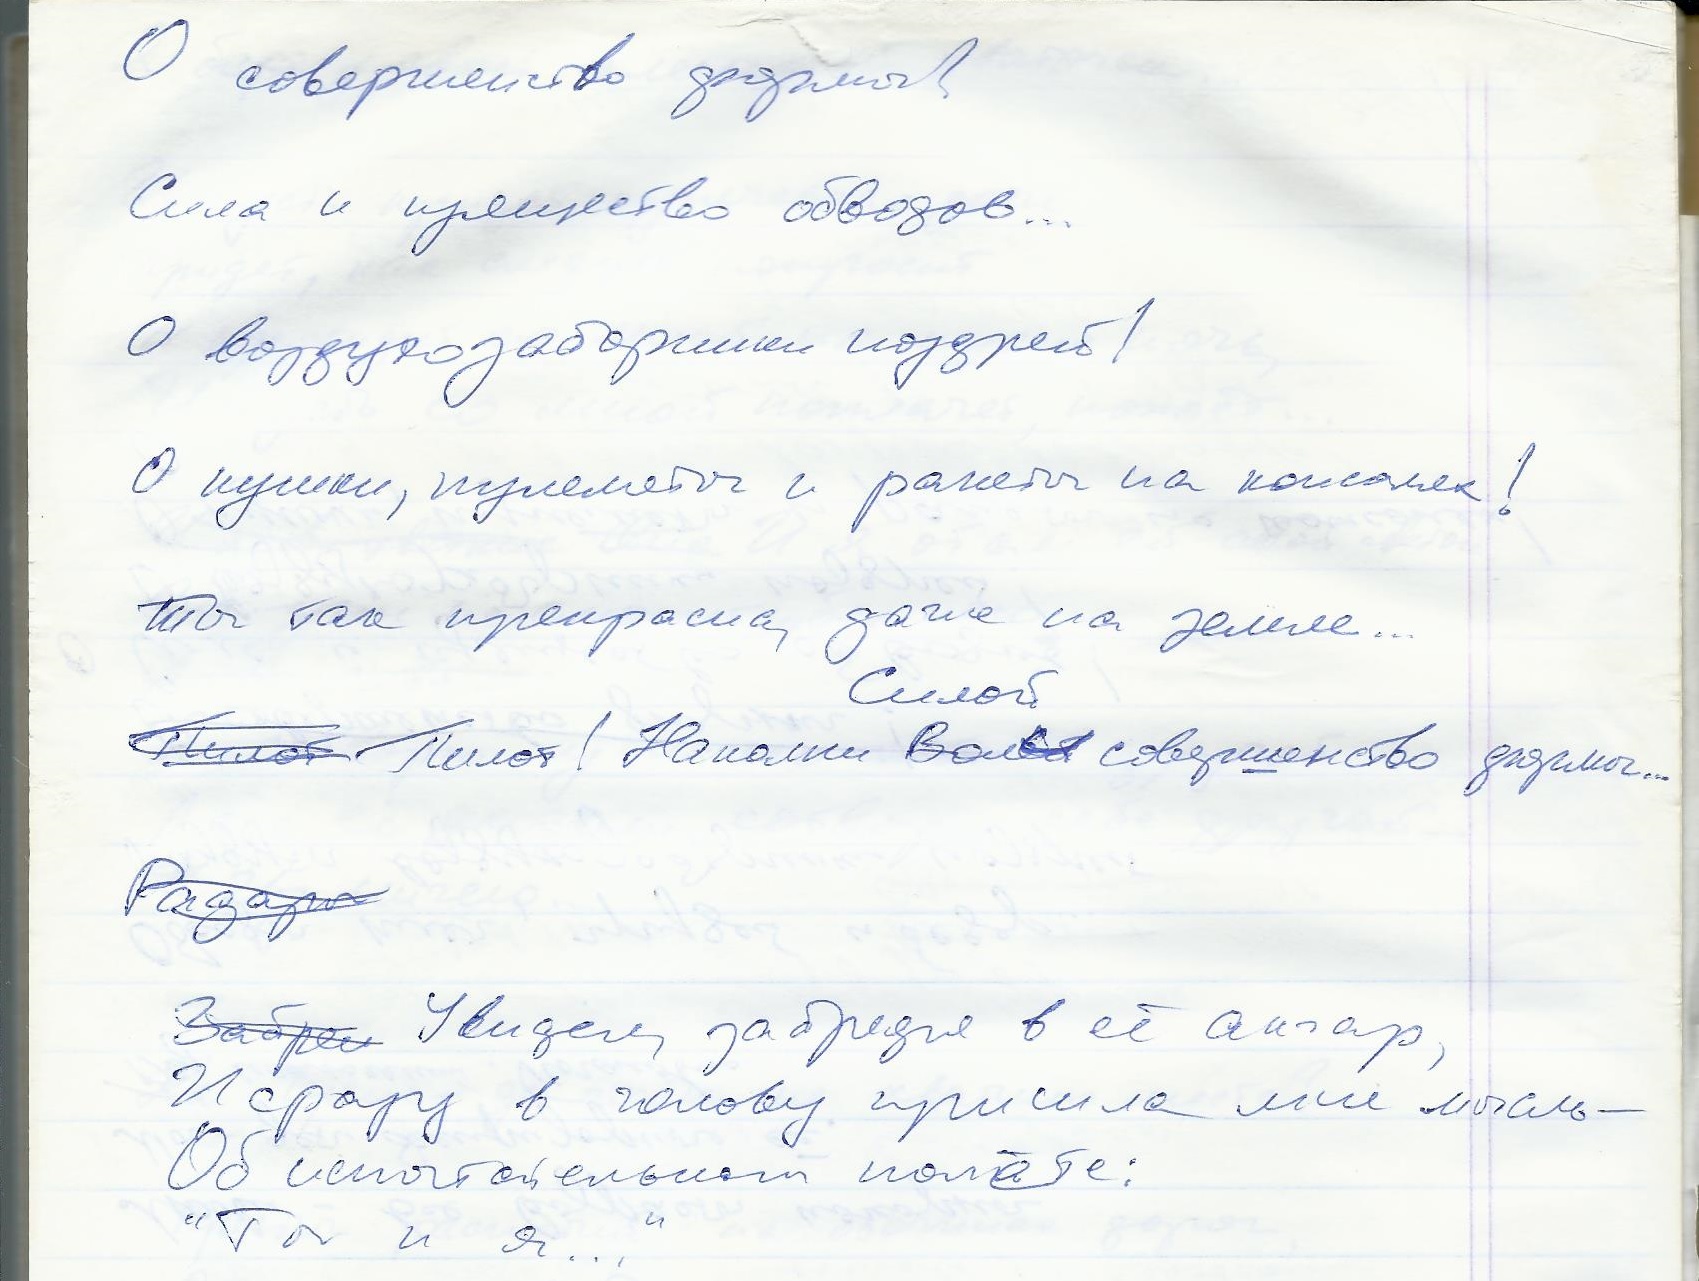 О совершенство
Сила и изящество обводов...
О воздухозаборники ноздрей!
О пушки, пулеметы и ракеты на консолях!
Ты так прекрасна, даже на земле...
Силой
Пилот Пилот! Наполни совершенство
Радары
Увидел, забредя в её ангар,
И сразу в голову пришла мне мысль —
Об испытательном полёте:
"Ты и я..."